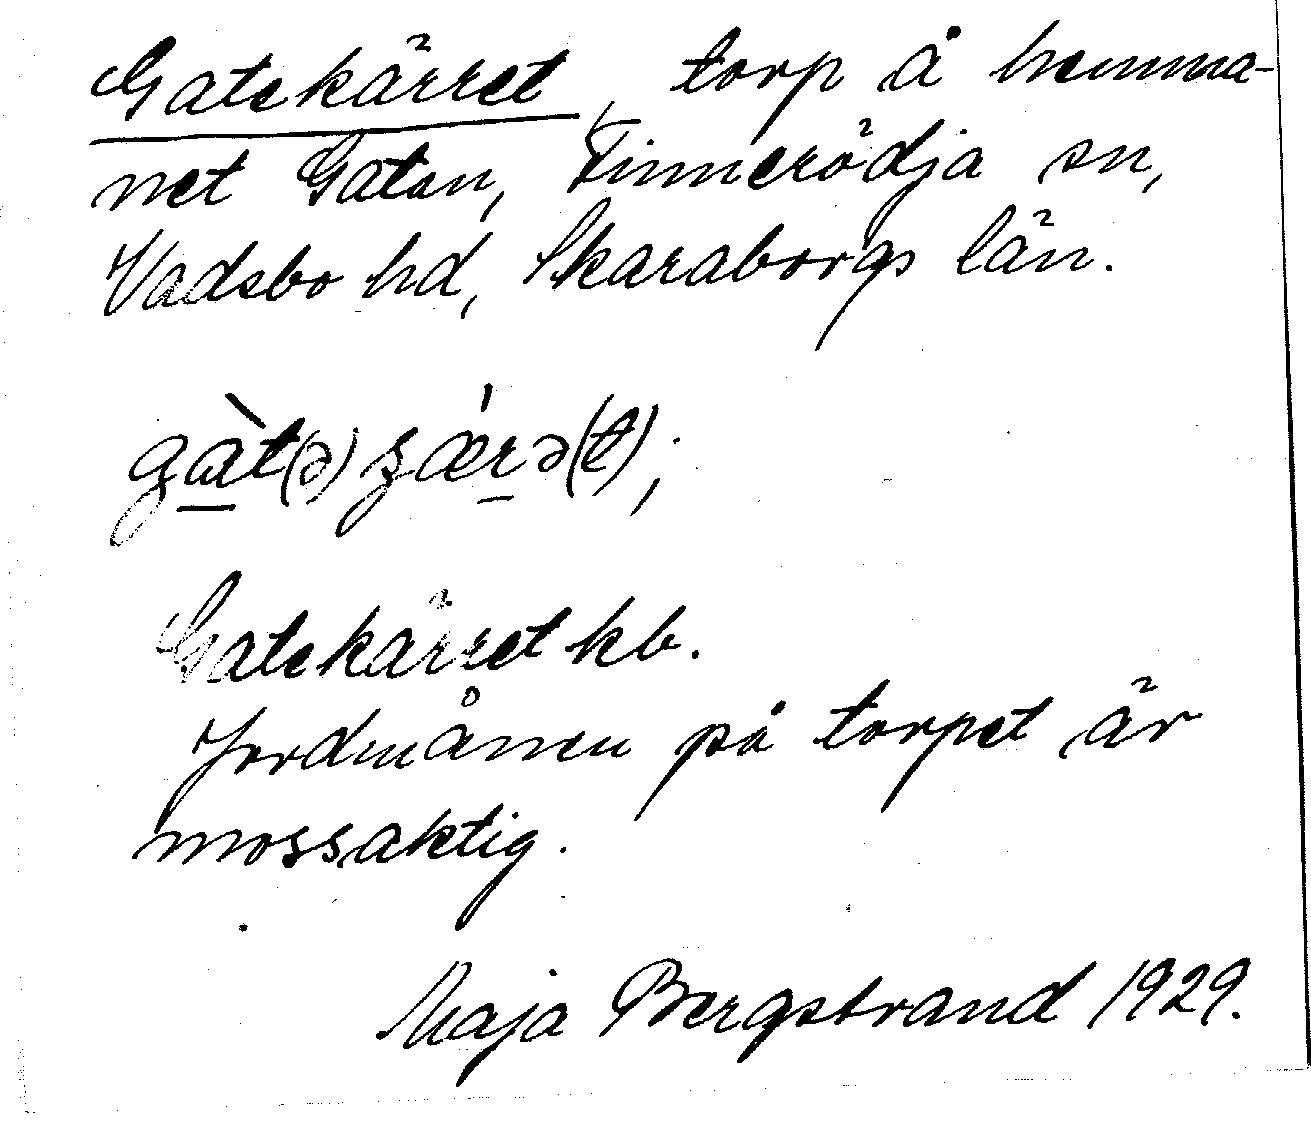 Gatekärret, torp å hemma-
net Gatan, Finnerödja sn,
Vadsbo hd, Skaraborgs län.
gàt(ə)ʒǽrə(t);
Gatekärret kb.
Jordmånen på torpet är
mossaktig.
Maja Bergstrand 1929.